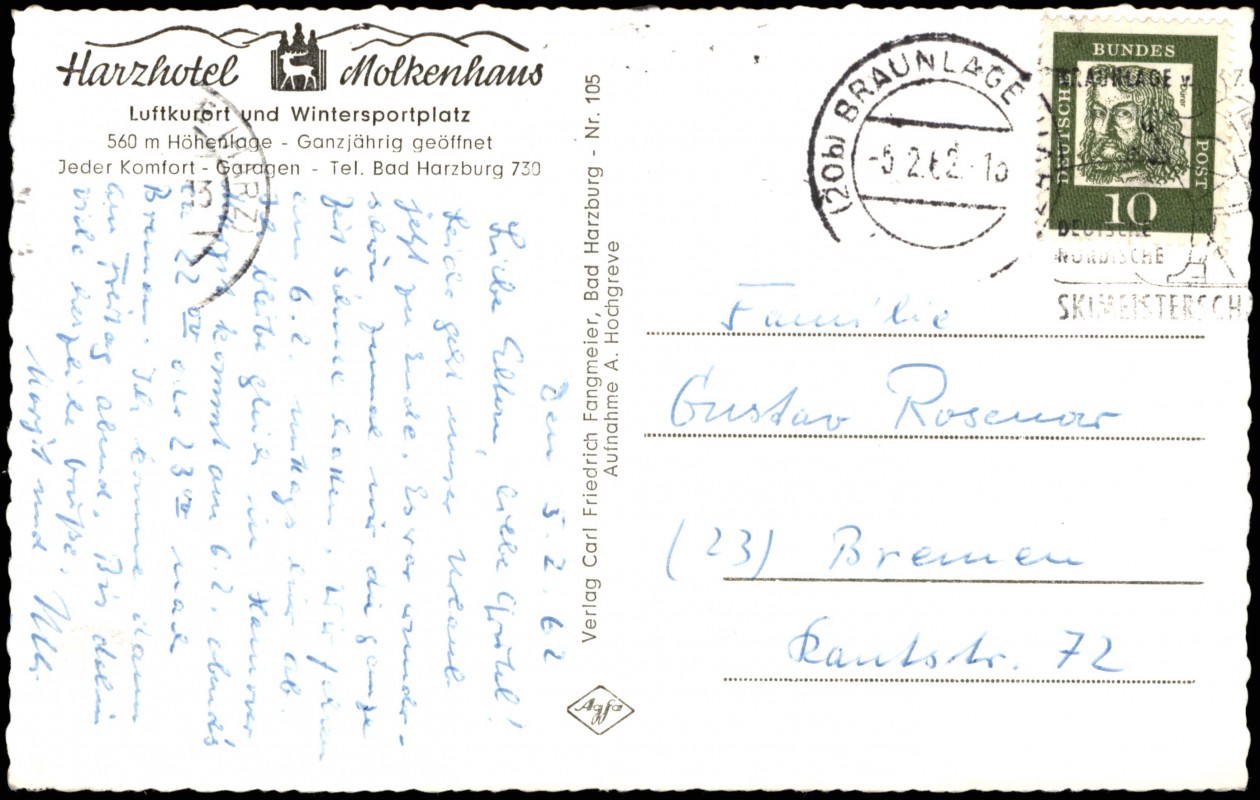 Harzhotel Molkenhaus
Luftkurort und Wintersportplatz
560 m Höhenlage - Ganzjährig geöffnet
Jeder Komfort - Garagen - Tel. Bad Harzburg 730
Den 5.2.62
Liebe Eltern, liebe
Leider geht unser Urlaub
jetzt zu Ende. Es war wunder-
schön zumal wir die ganze
Zeit Sonne hatten. Wir fahren
am 6.2. mittags hier ab.
Ich bleibe gleich in Hannover
kommt am 6.2. abends
22 00 oder 23 00 nach
Bremen. Ich komme dann
am Freitag abend. Bis dahin
viele herzliche Grüße.
Margit und Ulli.
Verlag Carl Friedrich Fangmeier, Bad Harzburg - Nr. 105
Aufnahme A. Hochgreve
Agfa
(20b) BRAUNLAGE
-5.2.62.-
HARZ)
13
BRAUNLAGE
DEUTSCHE
NORDISCHE
SKIMEISTERSCH
DEUTSCHE
BUNDES
POST
Dürer
10
Familie
Gustav Rosenow
(23) Bremen
Kantstr. 72